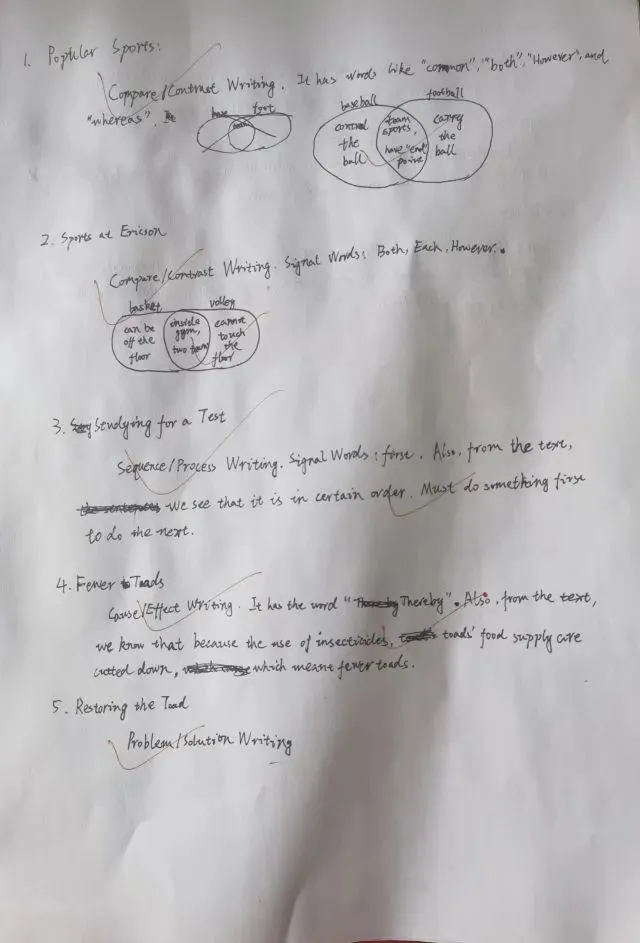 1. Popular Sports:
Compare/Contrast Writing. It has words like "common", "both", "However", and
"whereas".
base foot
baseball football
control the ball
team sports, have "end" point
carry the ball
2. Sports at Ericson
Compare/Contrast Writing. Signal Words: Both, Each, However.
basket volley
can be off the floor
inside gym, two team
cannot touch the floor
3. Studying for a Test
Sequence/Process Writing. Signal Words: first. Also, from the text,
we see that it is in certain order. Must do something first
to do the next.
4. Fewer Toads
Cause/Effect Writing. It has the word "Thereby". Also, from the text,
we know that because the use of insecticides, toads' food supply are
cutted down, which meant fewer toads.
5. Restoring the Toad
Problem/Solution Writing